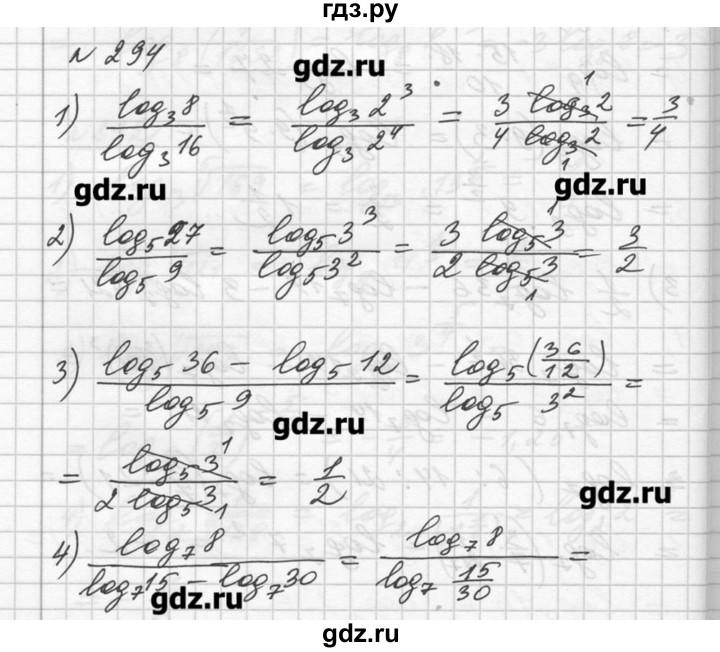 гдз.ру
N 294
gdz.ru
1) log₃8 / log₃16 = log₃2³ / log₃2⁴ = 3 log₃2 / 4 log₃2 = 3/4
1
1
gdz.ru
gdz.ru
2) log₅27 / log₅9 = log₅3³ / log₅3² = 3 log₅3 / 2 log₅3 = 3/2
1
1
3) log₅36 − log₅12 / log₅9 = log₅(36/12) / log₅ 3² =
gdz.ru
= log₅3 / 2 log₅3 = 1/2
1
1
gdz.ru
4) log₇8 / log₇15 − log₇30 = log₇8 / log₇ 15/30 =
gdz.ru
gdz.ru